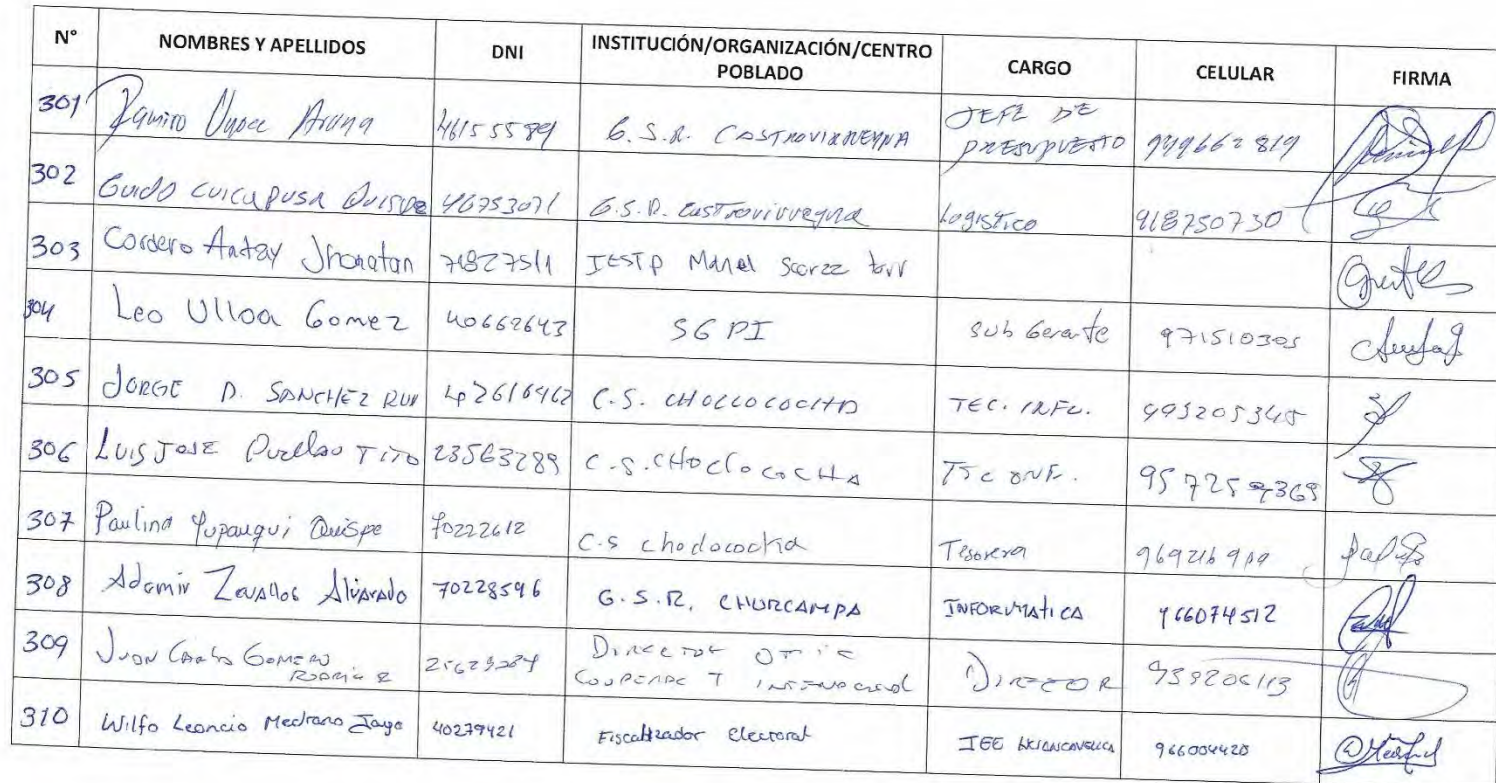 N° NOMBRES Y APELLIDOS DNI INSTITUCIÓN/ORGANIZACIÓN/CENTRO POBLADO CARGO CELULAR FIRMA
301 Ramiro Arana 46155589 G.S.R. CASTROVIRREYNA JEFE DE PRESUPUESTO 949662819
302 Guido CUICAPUSA QUISPE 46753071 G.S.R. Castrovirreyna Logístico 918750730
303 Cordero Antay Jhonatan IESTP Manel Scorza
304 Leo Ulloa Gomez 40662643 SGPI Sub Gerente 971510305
305 JORGE D. SANCHEZ 42616462 C.S. CHOCLOCOCHA TEC. INFL. 995205345
306 LUIS JOSE TITO 23563289 C.S. CHOCLOCOCHA
307 Paulina Yupanqui Quispe 70222612 C.S Choclococha Tesorera
308 Adamir Zevallos Alvarado 70228596 G.S.R. CHURCAMPA INFORMATICA 966074512
309 Juan Carlos GOMERO DIRECTOR 939206113
310 Wilfo Leoncio Medrano 40279421 Fiscalizador Electoral JEE HUANCAVELICA 966004420